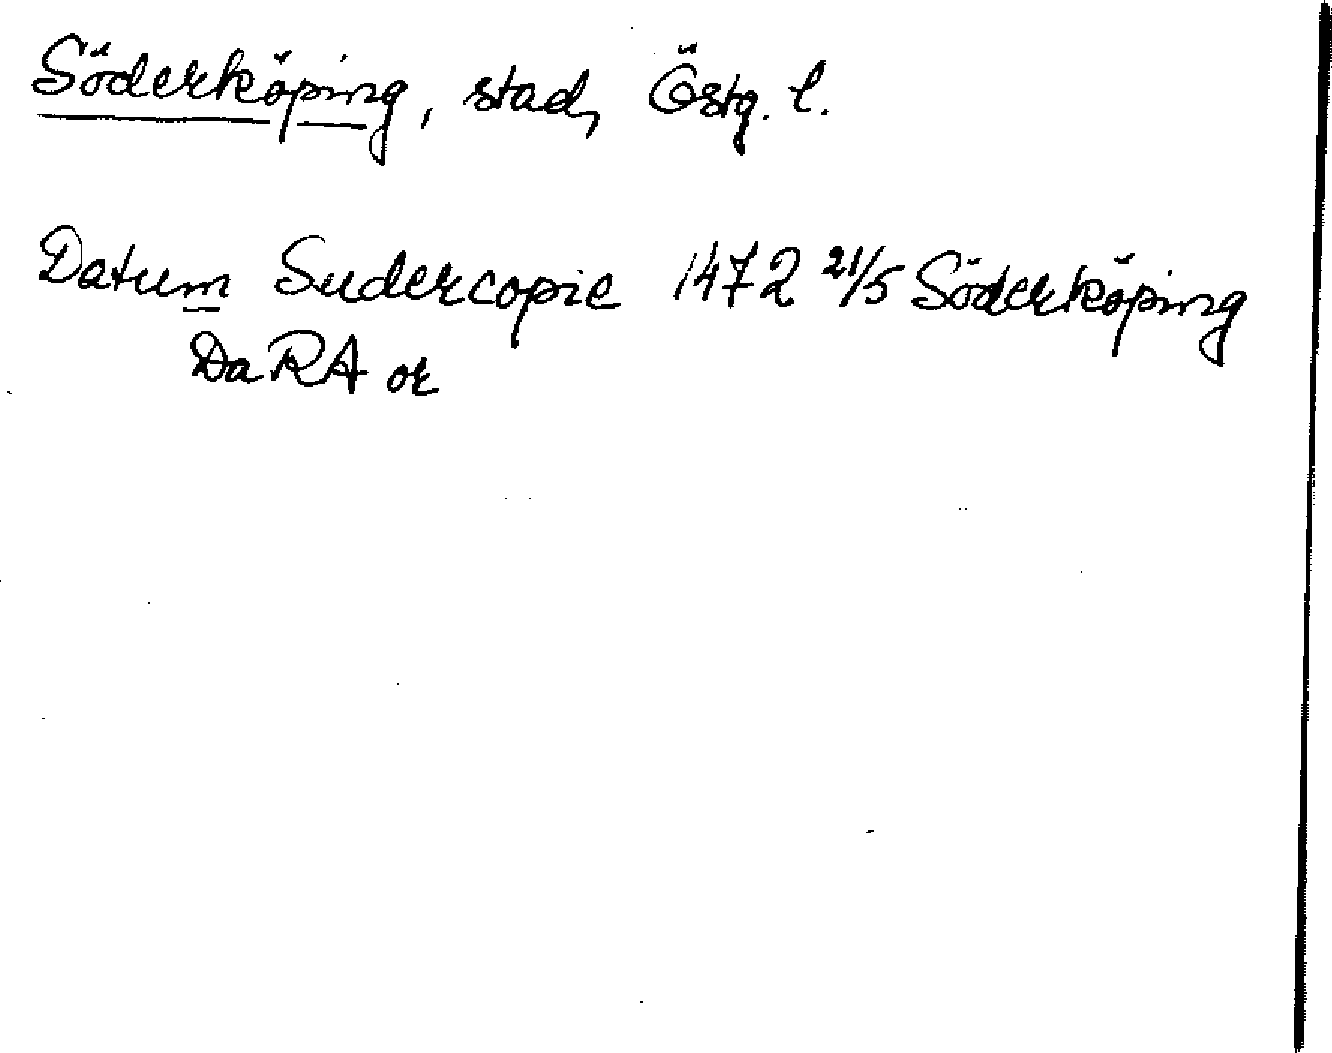 Söderköping, stad, Östg. l.
Datum Sudercopie 1472 21/5 Söderköping
DaRA or